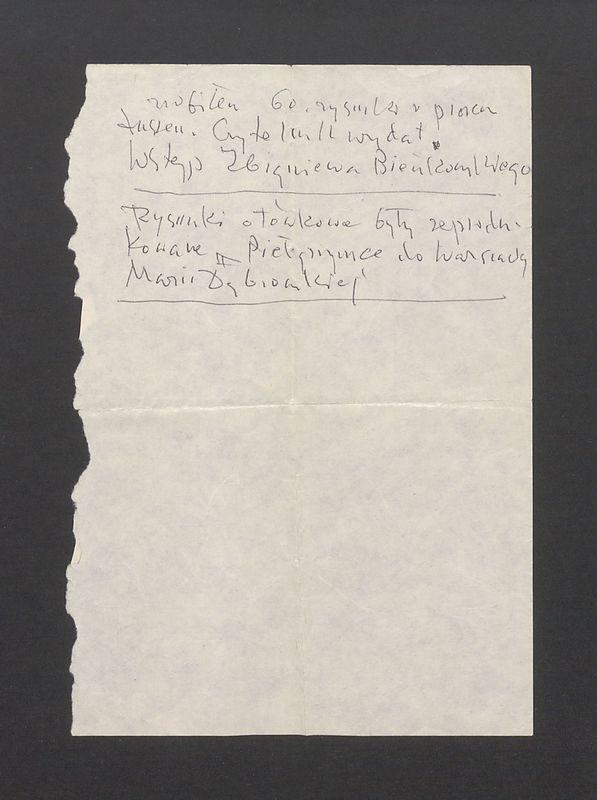 zrobiłem 60. rysunków piórem
tuszem. Czytelnik wydał.
Wstęp Zbigniewa Bieńkowskiego
Rysunki ołówkowe były reprodu-
kowane w Pielgrzymce do Warszawy
Marii Dąbrowskiej